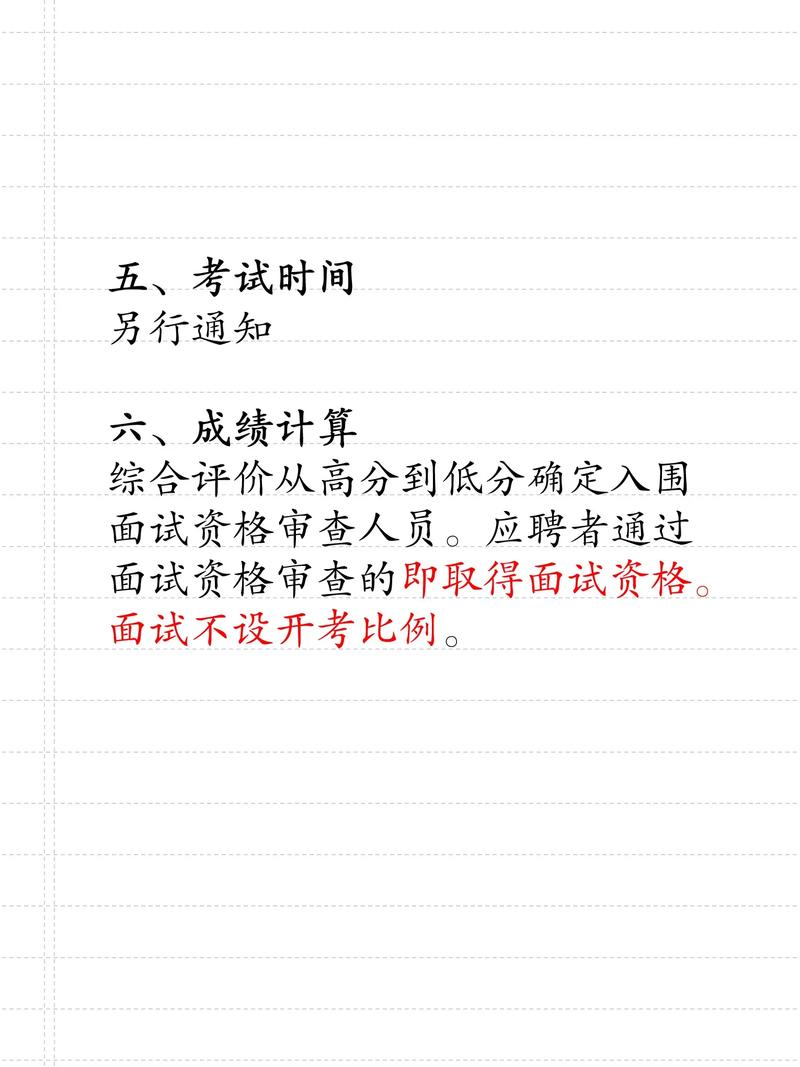 五、考试时间
另行通知
六、成绩计算
综合评价从高分到低分确定入围
面试资格审查人员。应聘者通过
面试资格审查的即取得面试资格。
面试不设开考比例。